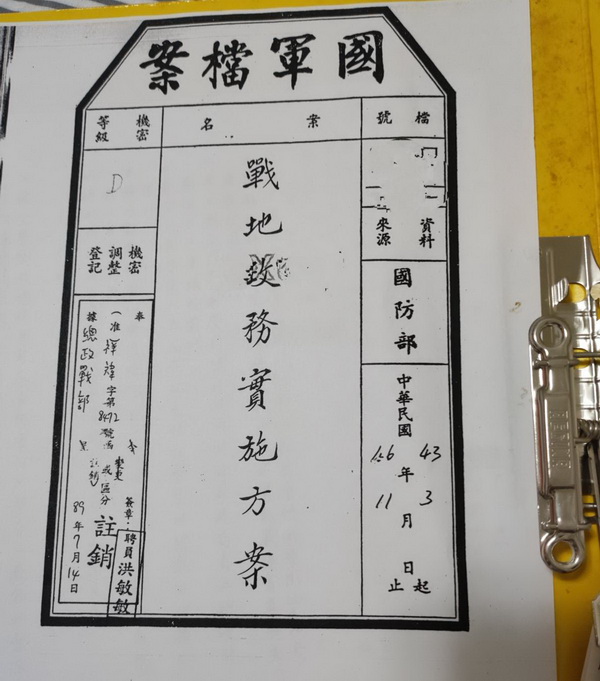 國軍檔案
檔號
案名
機密等級
D
資料來源
國防部
中華民國
43年3月 日起
56年11月 日止
戰地政務實施方案
機密調整登記
奉
據總政戰部
(准)祥
字第8472號
令
變更
或區分
註銷
簽章:
聘員洪敏敏
89年7月14日